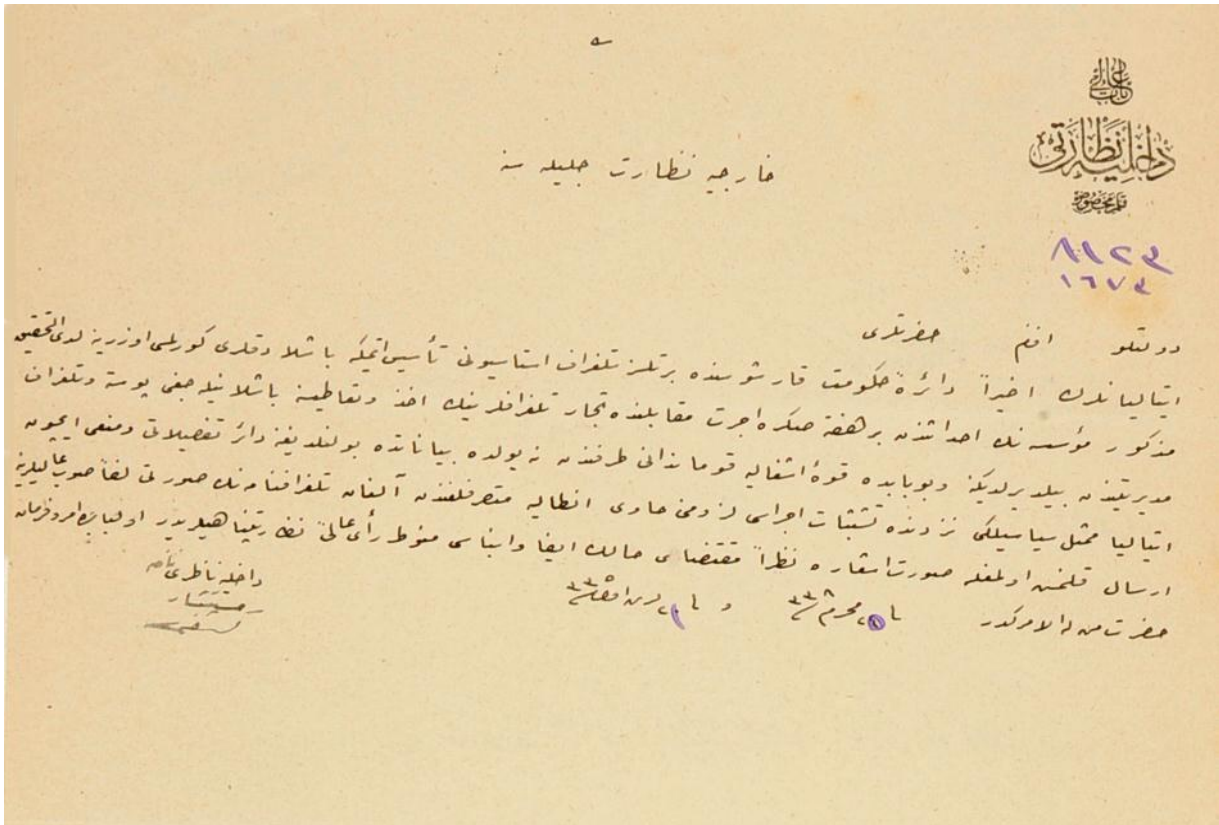 باب عالی
داخلیه نظارتی
قلم مخصوص
٨١٢٣
١٦٧٣
خارجیه نظارت جلیله سنه
دولتلو افندم حضرتلری
ایتالیانلرك اخیراً دائرۀ حكومت قارشوسنده برتلسز تلغراف استاسیونی تأسیس ایتمكه باشلادقلری كورلمسی اوزرینه لدی التحقیق
مذكور مؤسسه نك احداثندن برهفته صكره اجرت مقابلنده تجار تلغرافلرینك اخذ وتعاطیسنه باشلانیله جغی پوسته وتلغراف
مدیریتندن بیلدیرلدیكنه وبوبابده قوۀ اشغالیه قوماندانی طرفندن نه یولده بیاناتده بولندیغنه دائر تفصیلاتی ومنعی ایچون
ایتالیا ممثل سیاسیلكی نزدنده تشبثات اجراسی لزومنی حاوی انطالیه متصرفلغندن آلنان تلغرافنامه نك صورتی لفاً صوب عالیلرینه
ارسال قلنمش اولمغله صورت اشعاره نظراً مقتضای حالك ایفا وانباسی منوط رأی عالئ نظارتپناهیلریدر اولبابده امر وفرمان
حضرت من له الامركدر فی محرم سنه ٣٣٨ و فی تشرین اول سنه ٣٣٥
داخلیه ناظری نامنه
مستشار